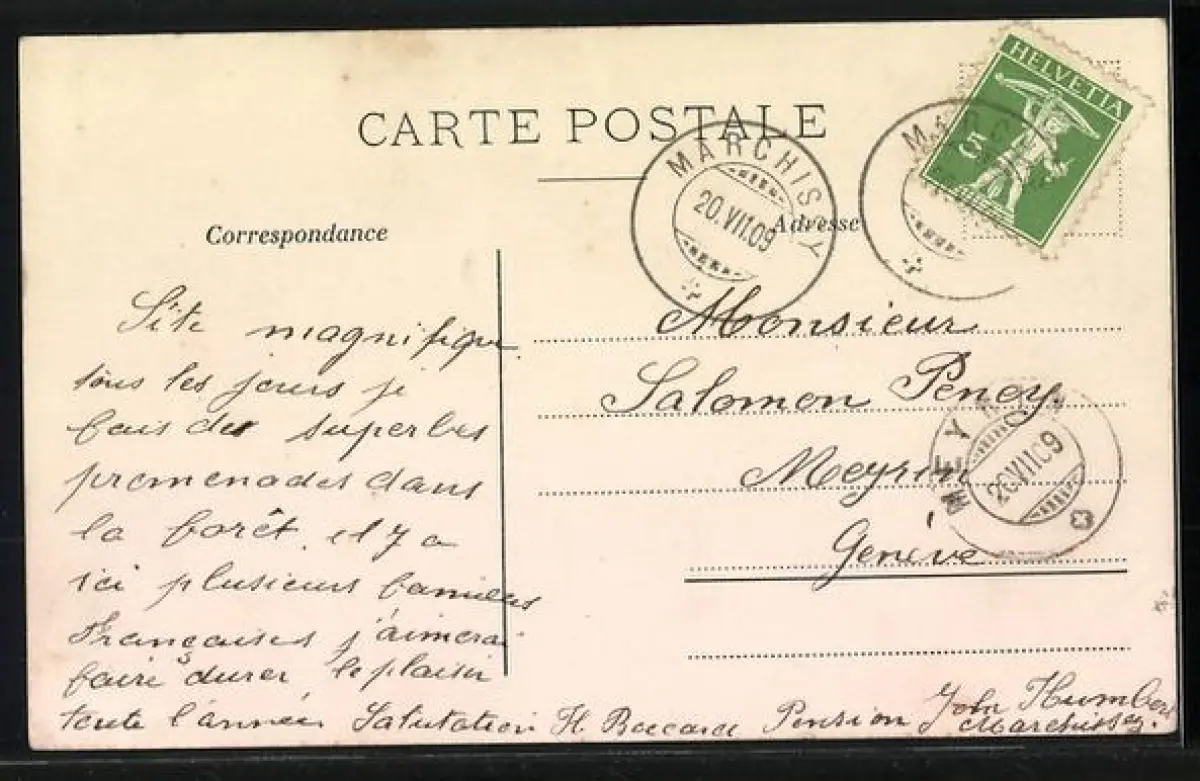 CARTE POSTALE
HELVETIA
5
MARCHISSY
20.VII.09
MARCHI
Correspondance
Adresse
Site magnifique
tous les jours je
fais des superbes
promenades dans
la forêt. il y a
ici plusieurs familles
Françaises j'aimerai
faire durer le plaisir
toute l'année Salutation H. Baccard Pension John Humbert
Marchissy.
Monsieur
Salomon Peney.
Meyrin
Genève
MEY
20.VII.09